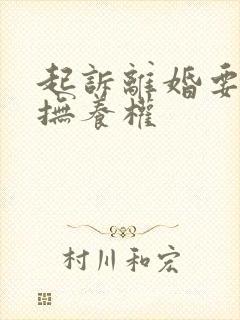 起訴離婚要
撫養權
村川和宏